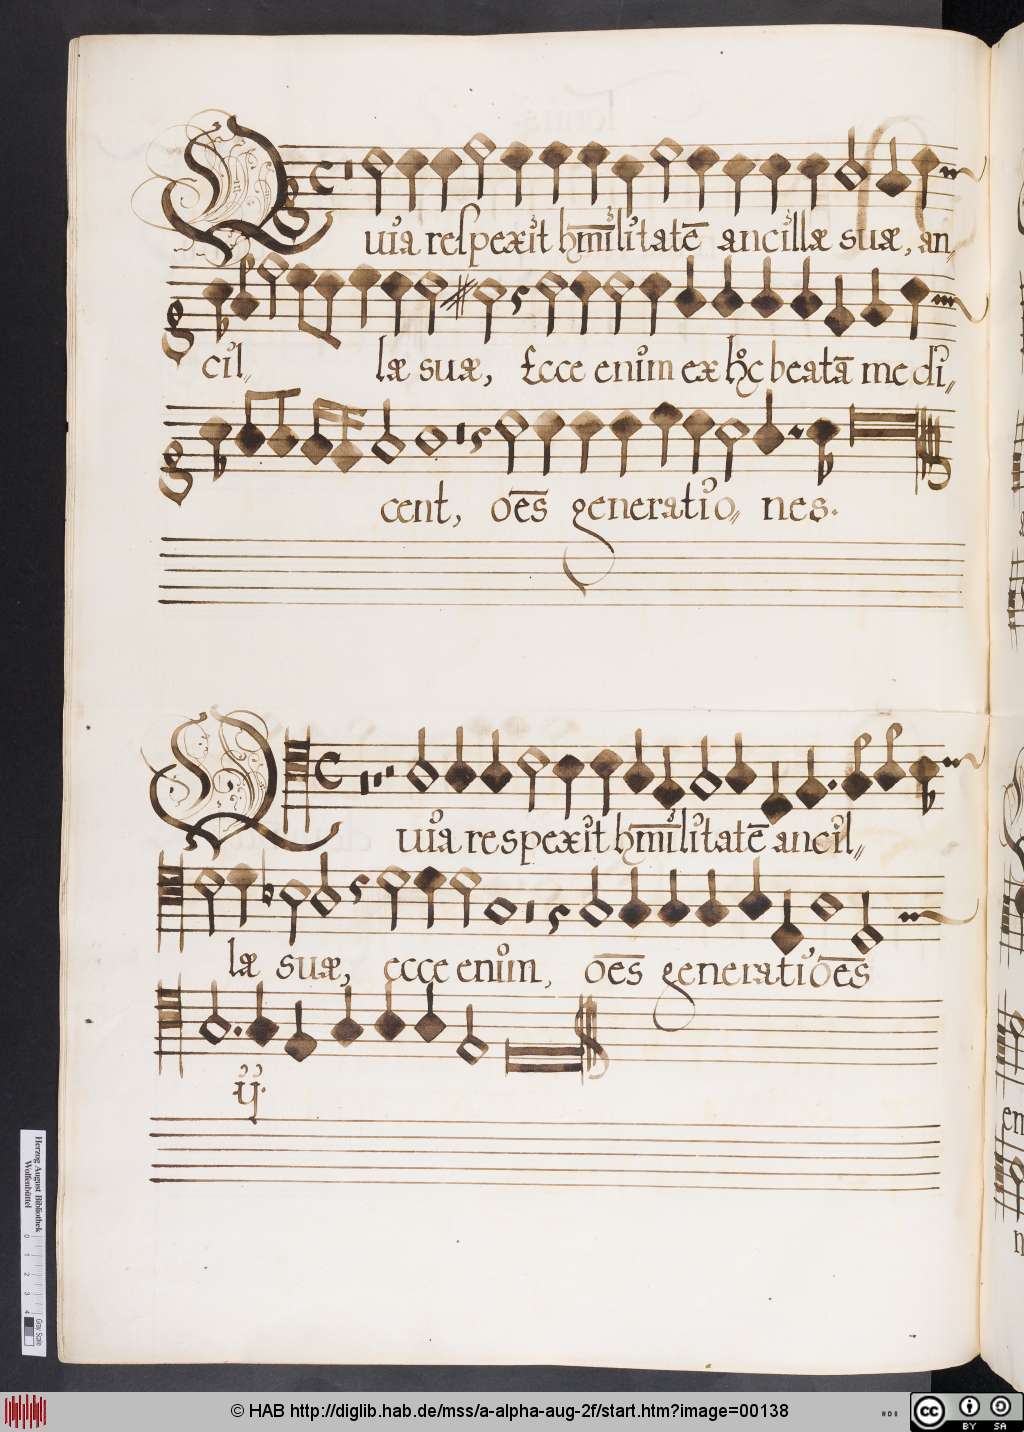 Quia respexit hūmilitatē ancillæ suæ, an〃
cil〃 læ suæ, Ecce enim ex hoc beatā me di〃
cent, oēs generatio〃 nes.
Quia respexit hūmilitatē ancil〃
læ suæ, ecce enim, oēs generatiōēs
ij.
Herzog August Bibliothek
Wolfenbüttel
0 1 2 3 4
Gray Scale
© HAB http://diglib.hab.de/mss/a-alpha-aug-2f/start.htm?image=00138
cc BY SA